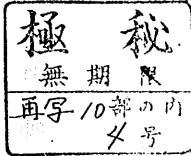 極秘
無期限
再写10部の内
4号